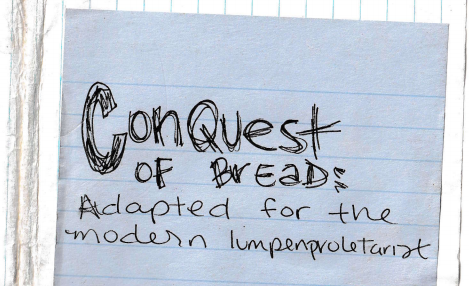 ConQuest
OF BrEaD:
Adapted for the
modern lumpenproletariat